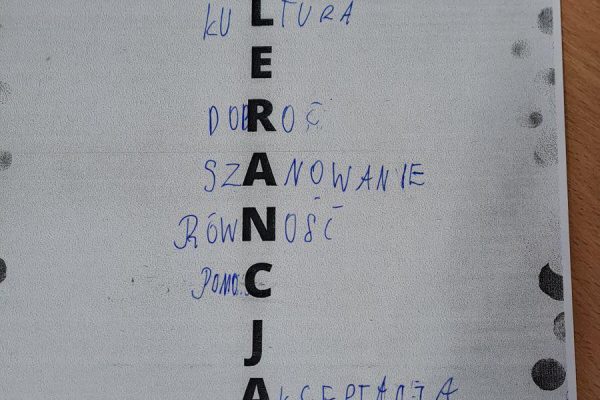 KULTURA
E
DOBROĆ
SZANOWANIE
RÓWNOŚĆ
POMOC
J
AKCEPTACJA